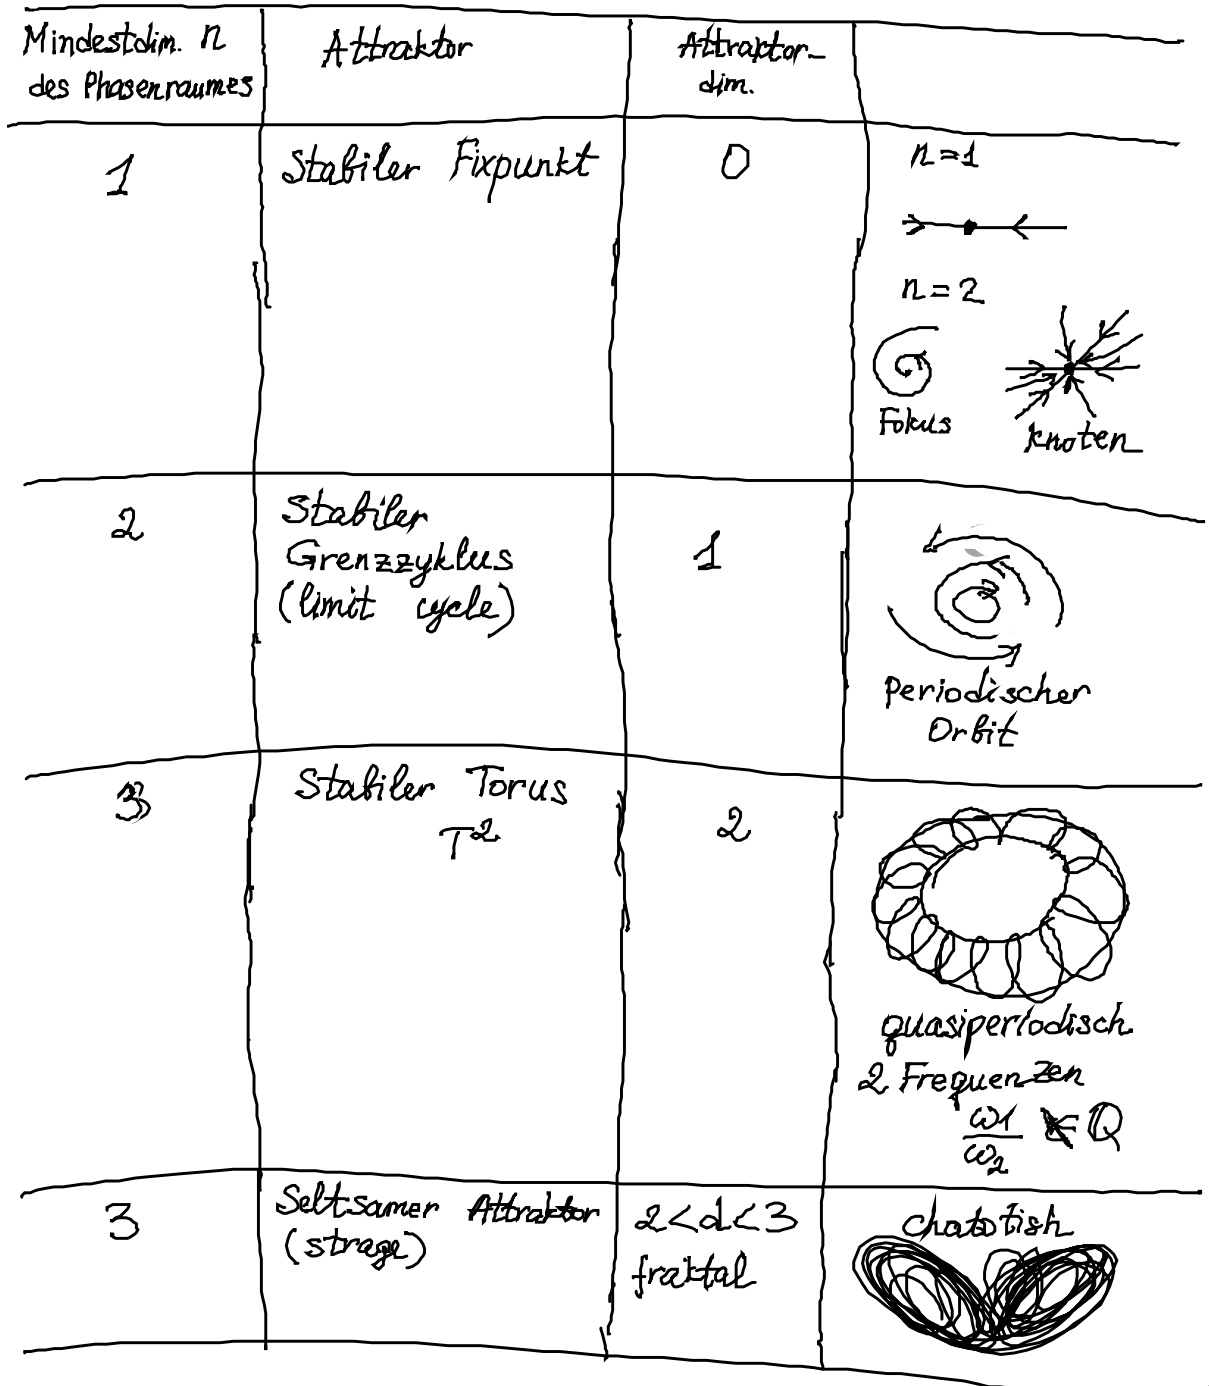 Mindestdim. n
des Phasenraumes
Attraktor
Attraktor-
dim.
1
Stabiler Fixpunkt
0
n=1
n=2
Fokus
Knoten
2
Stabiler
Grenzzyklus
(limit cycle)
1
Periodischer
Orbit
3
Stabiler Torus
T²
2
quasiperiodisch
2 Frequenzen
ω1/ω2 ∉ Q
3
Seltsamer Attraktor
(strage)
2<d<3
fraktal
chaotish